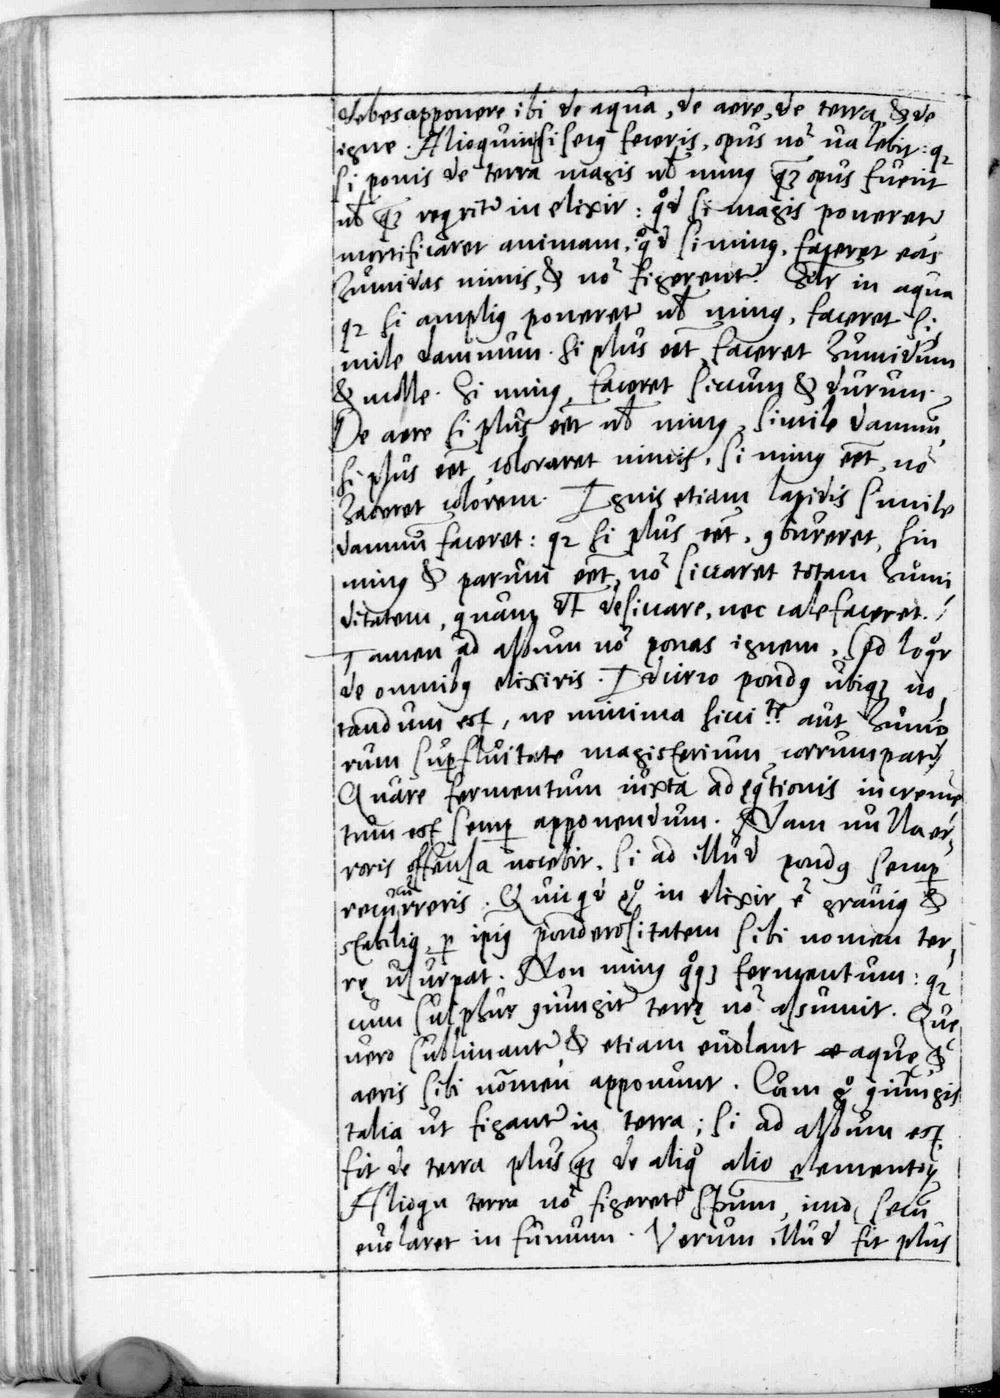 debes apponere ibi de aqua, de aere, de terra, & de
igne. Alioquin si secꝰ feceris, opus nō valebit: qꝛ
si ponis de terra magis vl̄ minꝰ qꝫ opus fuerit
vl̄ qꝫ reqritr̄ in elixir: qͦd si magis poneretr̄
mortificaret animam, qͦd si minꝰ, faceret eas
humidas nimis, & nō figerentr̄. Silr in aqua
qꝛ si ampliꝰ poneretr̄ vl̄ minꝰ, faceret si,
mile damnum. Si plus eēt faceret humidum
& molle. Si minꝰ, faceret siccum & durum.
De aere si plus eēt vl̄ minꝰ, simile damnū,
Si plus eēt, coloraret nimis, si minꝰ eēt, nō
haberet colorem. Ignis etiam lapidis simile
damnū faceret: qꝛ si plus eēt, ꝯbureret, sin
minꝰ & parum eēt, nō siccaret totam humi
ditatem, quam dt̄ desiccare, nec calefaceret.
Tamen ad album nō ponas ignem, sed loqͦr
de omnibꝰ elixiris. Idcirco pondꝰ ubiqꝫ no,
tandum est, ne minima sicci aut humo
rum supfluitate magisterium corrumpatr̄
Quare fermentum iuxta adęqtionis increme
tum est semp apponendum. Nam nulla er,
roris offensa nocebit, si ad illud pondꝰ semp
recurreris. Quicqd gͦ in elixir ē graviꝰ &
stabiliꝰ, p ipiꝰ ponderositatem sibi nomen ter,
rę usurpat. Non minꝰ qͦqꝫ fermentum: qꝛ
cum sulphur ꝯiungitr̄ terrę nō assumit. Que
vero sublimantr̄ & etiam evolant aquę &
aeris sibi nomen apponunt. Cum gͦ ꝯiungis
talia ut figantr̄ in terra; si ad album est
fit de terra plus qꝫ de aliqͦ alio elementoꝝ
Alioqn terra nō figeret spūm, imo secū
evolaret in fumum. Verum illud fit plus